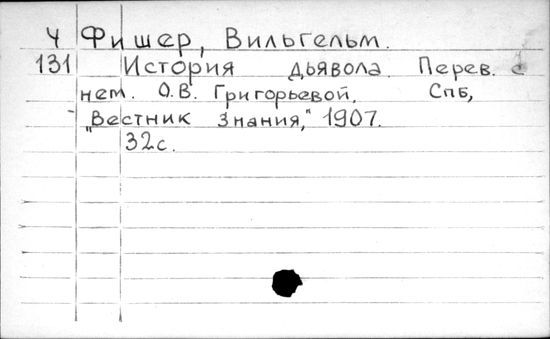 Ч Фишер, Вильгельм.
131 История дьявола. Перев. с
нем. О.В. Григорьевой. Спб,
"Вестник Знания," 1907.
32с.